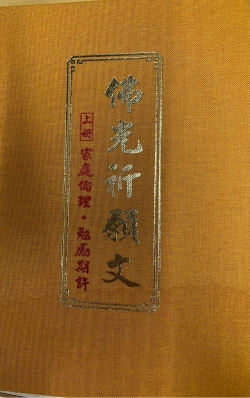 佛光祈願文
上冊 家庭倫理·勉勵期許